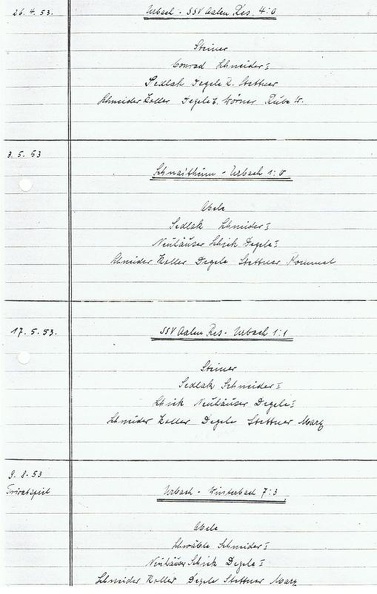 26.4.53. Urbach - SSV Aalen Res. 4:0
Steiner
Conrad Schneider I
Sedlak Degele L. Stettner
Schneider Zoller Degele I. Wörner Rube W.
3.5.53 Schnaitheim - Urbach 1:0
Abele
Sedlak Schneider I
Neuhäuser Schiek Degele I
Schneider Zoller Degele Stettner Rommel
17.5.53. SSV Aalen Res. - Urbach 1:1
Steiner
Sedlak Schneider I
Schiek Neuhäuser Degele I
Schneider Zoller Degele Stettner Marz
9.8.53 Urbach - Winterbach 7:3
Privatspiel
Abele
Schwäble Schneider I
Neuhäuser Schiek Degele I
Schneider Zoller Degele Stettner Marz